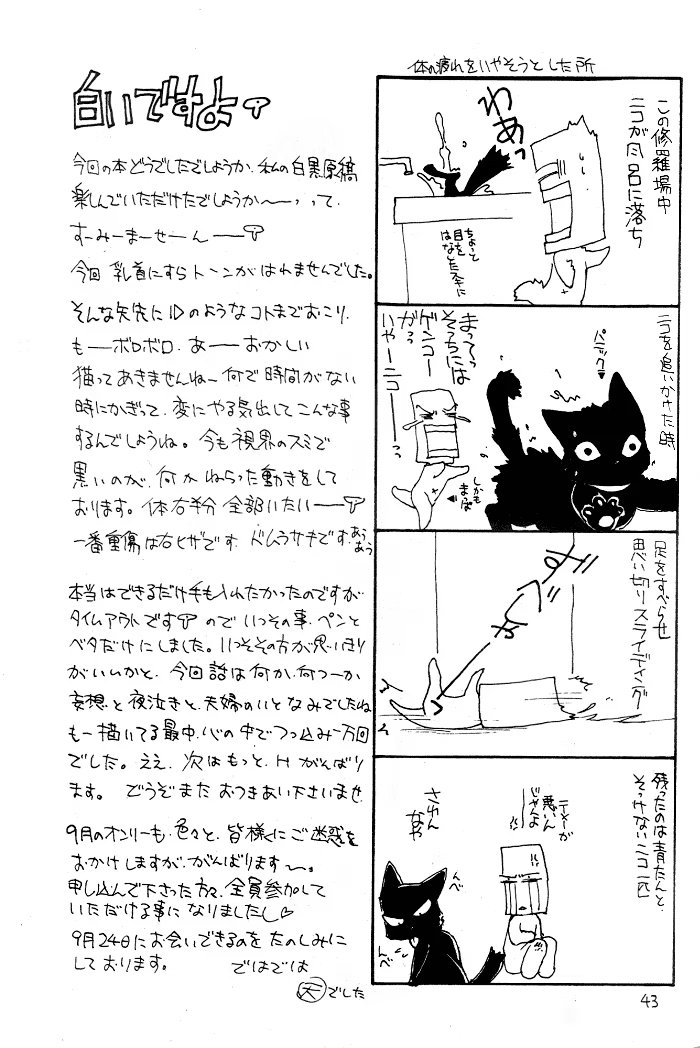 白いですよ
今回の本どうでしたでしょうか、私の白黒原稿
楽しんでいただけたでしょうか〜、って、
すーみーまーせーん
今回 乳首にすらトーンがはれませんでした。
そんな矢先に のようなコトまでおこり、
もーボロボロ、あーおかしい
猫ってあきませんねー何で時間がない
時にかぎって、変にやる気出してこんな事
するんでしょうね。今も視界のスミで
黒いのが、何かねらった動きをして
おります。体右半分 全部いたいー
一番重傷は右ヒザです、ドムラサキです、あうあう
本当はできるだけ手も入れたかったのですが
タイムアウトです ので いっその事、ペンと
ベタだけにしました。いっその方が思いきり
がいいかと、今回話は何か、何つーか
妄想と夜泣きと、夫婦のいとなみでしたね
もー描いてる最中、心の中でつっ込み一万回
でした。ええ、次はもっと、H がんばり
ます。 どうぞまた おつきあい下さいませ
9月のオンリーも、色々と、皆様にご迷惑を
おかけしますが、がんばります〜。
申し込んで下さった方々、全員参加して
いただける事になりましたし♡
9月24日にお会いできるのを たのしみに
しております。 ではでは
天でした
体の疲れをいやそうとした所
この修羅場中
ニコが風呂に落ち
わあっ
ちょっと
目を
はなしたスキに
ニコを追いかけた時
パニック♥
まってっ
そっちには
ゲンコー
がっっ
いやーニコーっ
しかも
まっぱ
足をすべらせ
思い切りスライディング
ずべしゃあっ
残ったのは青たんと、
そっけないニコ一匹
テメーが
悪いん
じゃんよ
さわん
なや
んべ
んべ
43